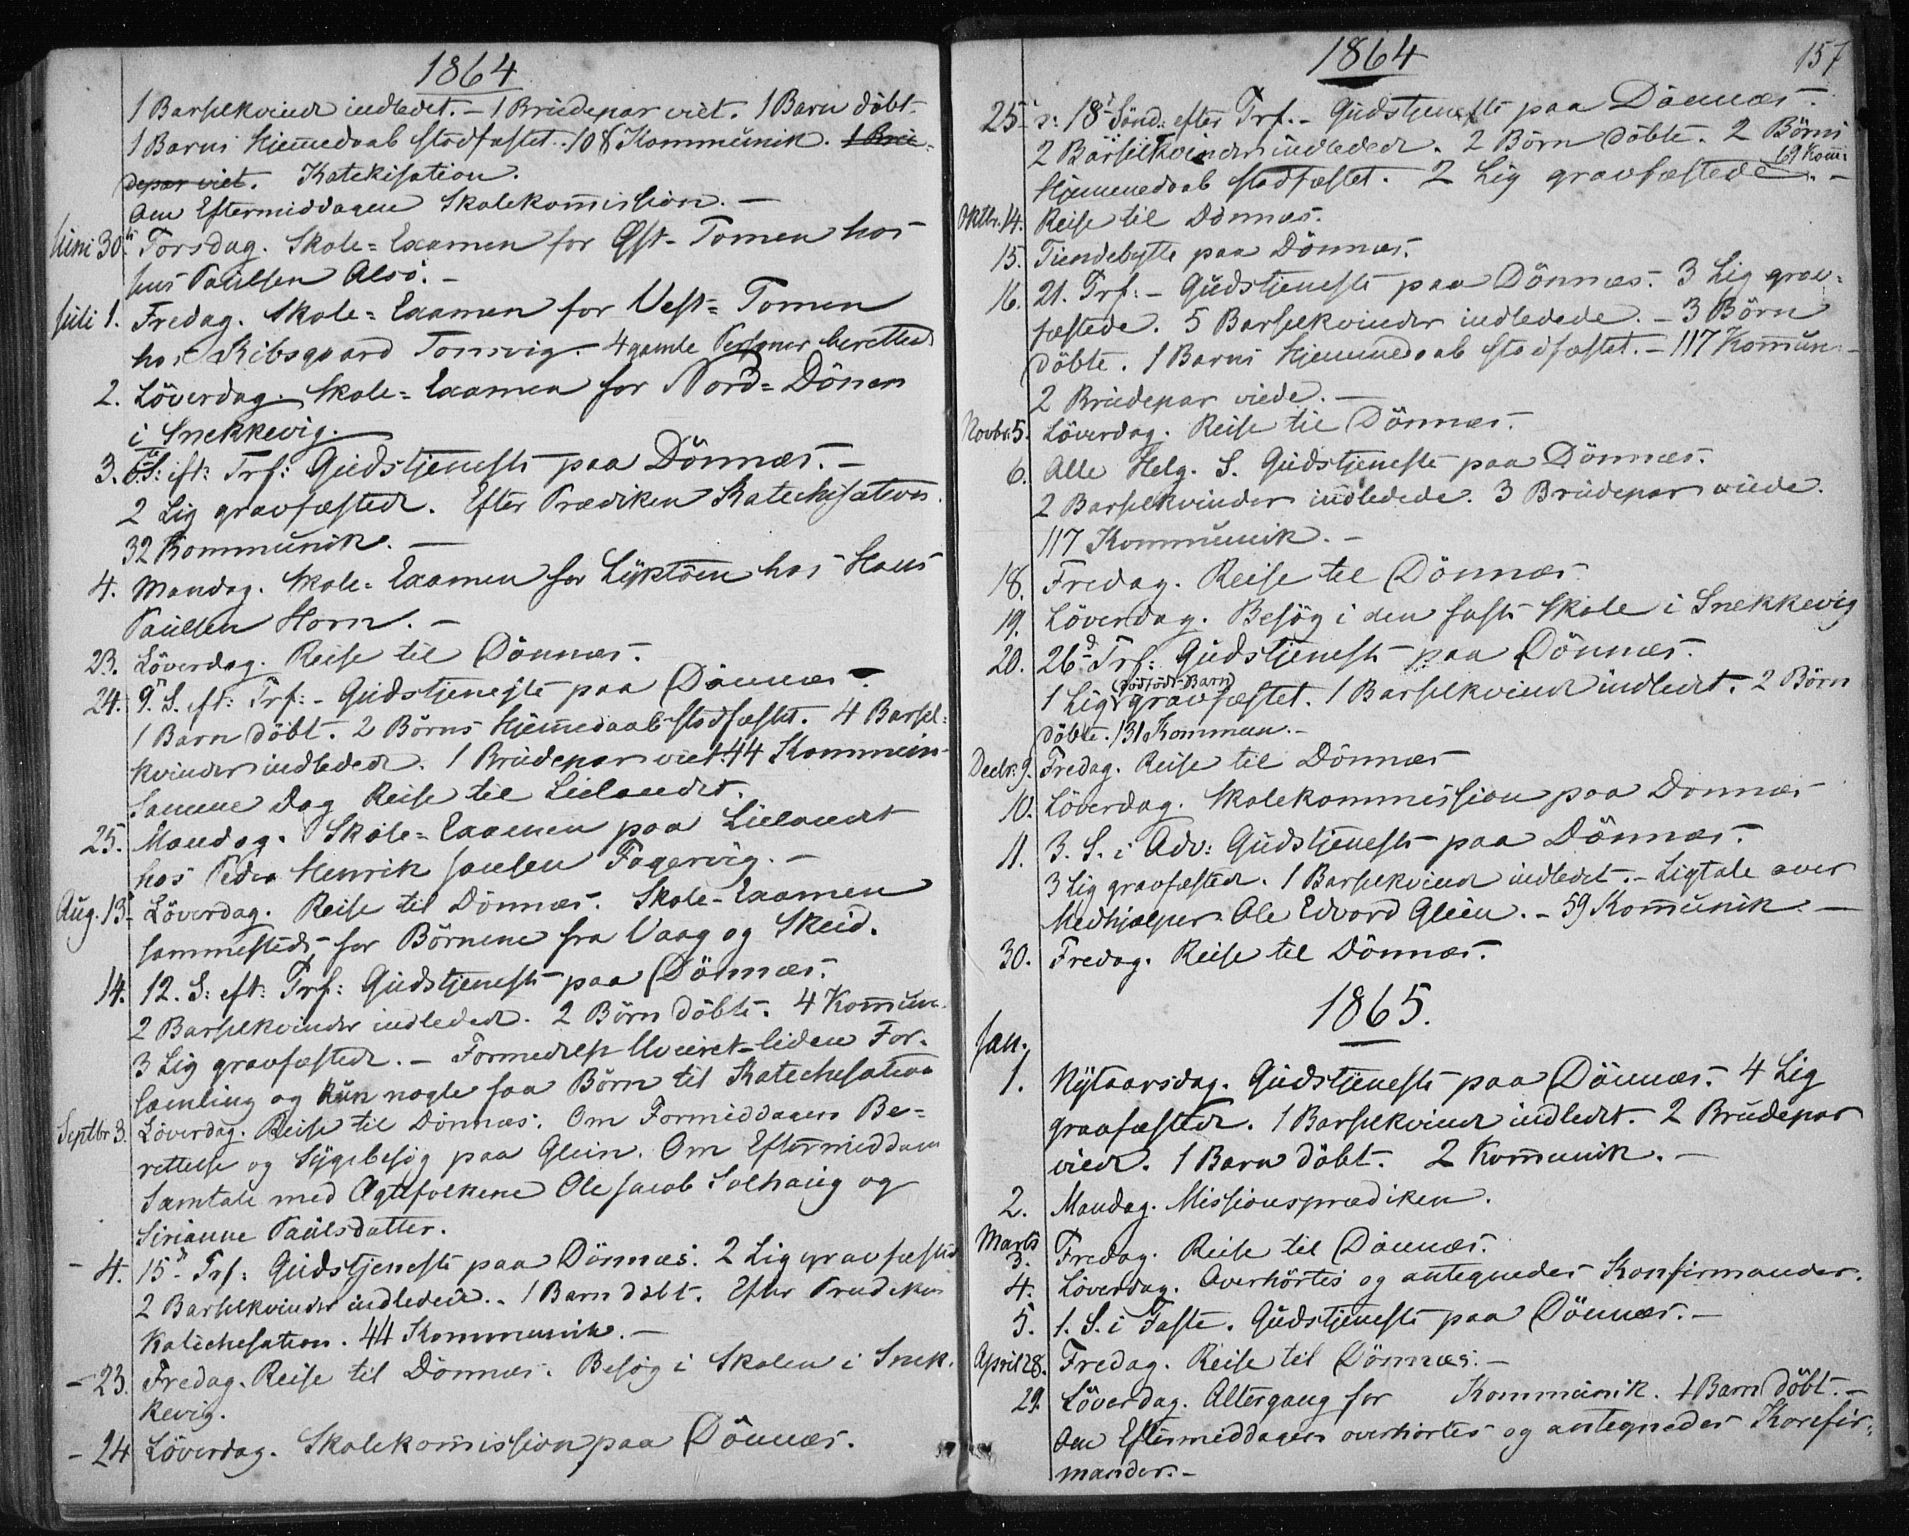 1864
1 Barselkvinde indledet. – 1 Brudepar viet. 1 Barn döbt
1 Barns Hjemmedaab stadfæstet. 108 Kommunik. 1 Bru-
depar viet. Katekisation.
Om Eftermiddagen Skolekommission. –
Juni 30. Torsdag. Skole-Examen for Øst-Tomen hos
Jens Paulsen Alsö. –
Juli 1. Fredag. Skole-Examen for Vest-Tomen
hos Ribsgaard Tomsvig. 4 gamle Personer berettede
2. Löverdag. Skole-Examen for Nord-Dönen
i Snekkevig.
3. 6 S. eft: Trf: Gudstjeneste paa Dönnæs. –
2 Lig gravfæstede. Efter Prædiken Katechisation.
32 Kommunik. –
4. Mandag. Skole-Examen for Lyktöen hos Hans
Paulsen Horn. –
23. Löverdag. Reise til Dönnæs.
24. 9. S. eft: Trf: – Gudstjeneste paa Dönnæs –
1 Barn döbt. 2 Börns Hjemmedaab stadfæstet. 4 Barsel-
kvinder indledede. 1 Brudepar viet. 44 Kommun
Samme Dag Reise til Lielandet.
25. Mandag. Skole-Examen paa Lielandet
hos Peder Henrik Jansen Fagervig. –
Aug. 13. Löverdag. Reise til Dönnæs. Skole-Examen
sammesteds for Börnene fra Vaag og Skeid.
14. 12. S. eft: Trf: Gudstjeneste paa Dönnæs.
2 Barselkvinder indledede. 2 Börn döbte. 4 Kommun.
3 Lig gravfæstede. – Formedelst Uveiret liden For-
samling og kun nogle faa Börn til Katechisation
Septbr 3. Löverdag. Reise til Dönnæs. Om Formiddagen Be-
rettelse og Sygebesög paa Glein. Om Eftermiddagen
Samtale med Ægtefolkene Ole Jacob Solhaug og
Sirianne Paulsdatter.
– 4. 15 Trf: Gudstjeneste paa Dönnæs. 2 Lig gravfæstede
2 Barselkvinder indledede. – 1 Barn döbt. Efter Prædiken
Katechisation. 44 Kommunik. –
– 23. Fredag. Reise til Dönnæs. Besög i Skolen i Snek-
kevig.
– 24 Löverdag. Skolekommission paa Dönnæs.
1864 157
25. 18 Sönd: efter Trf. – Gudstjeneste paa Dönnæs.
2 Barselkvinder indledede. 2 Börn döbte. 2 Börns
Hjemmedaab stadfæstet. 2 Lig gravfæstede. – 69 Komm:
Oktbr. 14. Reise til Dönnæs.
15. Tiendebytte paa Dönnæs.
16. 21. Trf: – Gudstjeneste paa Dönnæs. 3 Lig grav-
fæstede. 5 Barselkvinder indledede. – 3 Börn
döbte. 1 Barns Hjemmedaab stadfæstet. – 117 Kommun. –
2 Brudepar viede. –
Novbr. 5. Löverdag. Reise til Dönnæs.
6. Alle Helg. S. Gudstjeneste paa Dönnæs.
2 Barselkvinder indledede. 3 Brudepar viede.
117 Kommunik. –
18. Fredag. Reise til Dönnæs.
19. Löverdag. Besög i den faste Skole i Snekkevig
20. 26 Trf: Gudstjeneste paa Dönnæs.
1 Lig (dödfödt Barn) gravfæstet. 1 Barselkvinde indledet. 2 Börn
döbte. 131 Kommun. –
Decbr. 9. Fredag. Reise til Dönnæs
10. Löverdag. Skolekommission paa Dönnæs
11. 3. S. i Adv: Gudstjeneste paa Dönnæs.
3 Lig gravfæstede. 1 Barselkvinde indledet. – Ligtale over
Medhjælper Ole Edvard Glein. – 59 Kommunik. –
30. Fredag. Reise til Dönnæs.
1865.
Jan.
1. Nytaarsdag. Gudstjeneste paa Dönnæs. 4 Lig
gravfæstede. 1 Barselkvinde indledet. 2 Brudepar
viede. 1 Barn döbt. 2 Kommunik. –
2. Mandag. Missionsprædiken.
Marts
3. Fredag. Reise til Dönnæs.
4. Löverdag. Overhörtes og antegnedes Konfirmander.
5. 1. S. i Faste. Gudstjeneste paa Dönnæs. –
April 28. Fredag. Reise til Dönnæs. –
29. Löverdag. Altergang for Kommunik. 1 Barn döbt. –
Om Eftermiddagen overhörtes og antegnedes Konfir-
mander. –